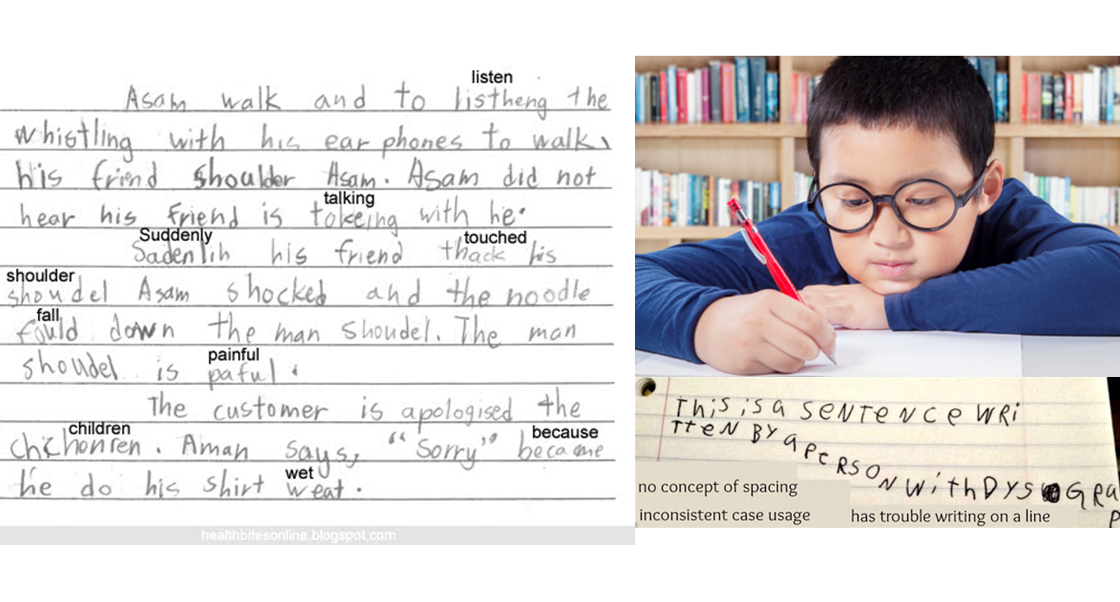 listen
Asam walk and to listheng the
whistling with his ear phones to walk,
his friend shoulder Asam. Asam did not
talking
hear his friend is tokeing with he.
Suddenly touched
Sadenlih his friend thack his
shoulder
shoudel Asam shocked and the noodle
fall
fould down the man shoudel. The man
painful
shoudel is paful.
The customer is apologised the
children because
chchonren. Aman says, "Sorry" became
wet
he do his shirt weat.
healthbitesonline.blogspot.com
THis is a SENTENCE WRi
TTeN BY a PeRSON WithDYS GRa
P
no concept of spacing
inconsistent case usage
has trouble writing on a line